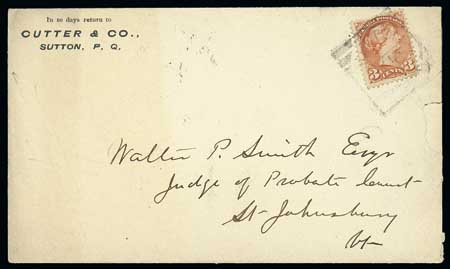 In 10 days return to
CUTTER & CO.,
SUTTON, P. Q.
3 CENTS 3
Walter P. Smith Esqr
Judge of Probate Court
St Johnsbury
Vt